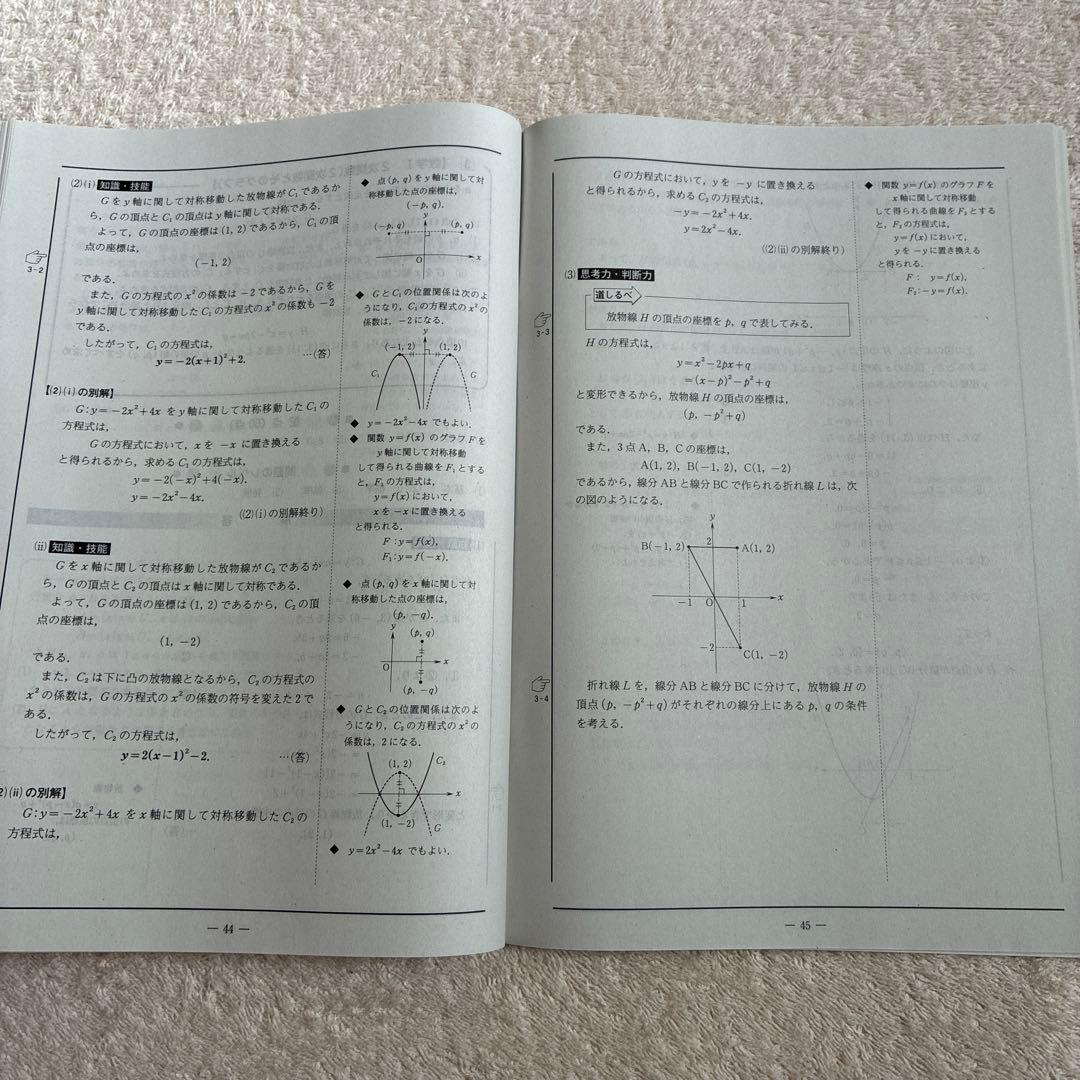 (2)(i) 知識・技能
Gをy軸に関して対称移動した放物線がC₁であるか
ら，Gの頂点とC₁の頂点はy軸に関して対称である．
よって，Gの頂点の座標は(1, 2)であるから，C₁の頂
点の座標は，
(−1, 2)
3-2
である．
また，Gの方程式のx²の係数は−2であるから，Gを
y軸に関して対称移動したC₁の方程式のx²の係数も−2
である．
したがって，C₁の方程式は，
y=−2(x+1)²+2. …(答)
【(2)(i)の別解】
G:y=−2x²+4x をy軸に関して対称移動したC₁の
方程式は，
Gの方程式において，xを −x に置き換える
と得られるから，求めるC₁の方程式は，
y=−2(−x)²+4(−x).
y=−2x²−4x.
((2)(i)の別解終り)
(ii) 知識・技能
Gをx軸に関して対称移動した放物線がC₂であるか
ら，Gの頂点とC₂の頂点はx軸に関して対称である．
よって，Gの頂点の座標は(1, 2)であるから，C₂の頂
点の座標は，
(1, −2)
である．
また，C₂は下に凸の放物線となるから，C₂の方程式の
x²の係数は，Gの方程式のx²の係数の符号を変えた2で
ある．
したがって，C₂の方程式は，
y=2(x−1)²−2. …(答)
2)(ii)の別解】
G:y=−2x²+4x をx軸に関して対称移動したC₂の
方程式は，
◆ 点(p, q)をy軸に関して対
称移動した点の座標は，
(−p, q).
y
(−p, q) (p, q)
O x
◆ GとC₁の位置関係は次のよ
うになり，C₁の方程式のx²の
係数は，−2になる．
y
(−1, 2) (1, 2)
x
C₁ G
◆ y=−2x²−4x でもよい．
◆ 関数 y=f(x) のグラフFを
y軸に関して対称移動
して得られる曲線をF₁とする
と，F₁の方程式は，
y=f(x)において，
xを−xに置き換える
と得られる．
F:y=f(x),
F₁:y=f(−x).
◆ 点(p, q)をx軸に関して対
称移動した点の座標は，
(p, −q).
y (p, q)
O x
(p, −q)
◆ GとC₂の位置関係は次のよ
うになり，C₂の方程式のx²の
係数は，2になる．
y
(1, 2) C₂
x
(1, −2) G
◆ y=2x²−4x でもよい．
— 44 —
Gの方程式において，yを −y に置き換える
と得られるから，求めるC₂の方程式は，
−y=−2x²+4x.
y=2x²−4x.
((2)(ii)の別解終り)
(3) 思考力・判断力
道しるべ
放物線Hの頂点の座標をp, qで表してみる．
3-3
Hの方程式は，
y=x²−2px+q
=(x−p)²−p²+q
と変形できるから，放物線Hの頂点の座標は，
(p, −p²+q)
である．
また，3点A，B，Cの座標は，
A(1, 2), B(−1, 2), C(1, −2)
であるから，線分ABと線分BCで作られる折れ線Lは，次
の図のようになる．
y
2
B(−1, 2) A(1, 2)
−1 O 1 x
−2 C(1, −2)
3-4
折れ線Lを，線分ABと線分BCに分けて，放物線Hの
頂点(p, −p²+q)がそれぞれの線分上にあるp, qの条件
を考える．
◆ 関数 y=f(x) のグラフFを
x軸に関して対称移動
して得られる曲線をF₂とする
と，F₂の方程式は，
y=f(x)において，
yを−yに置き換える
と得られる．
F: y=f(x),
F₂:−y=f(x).
— 45 —